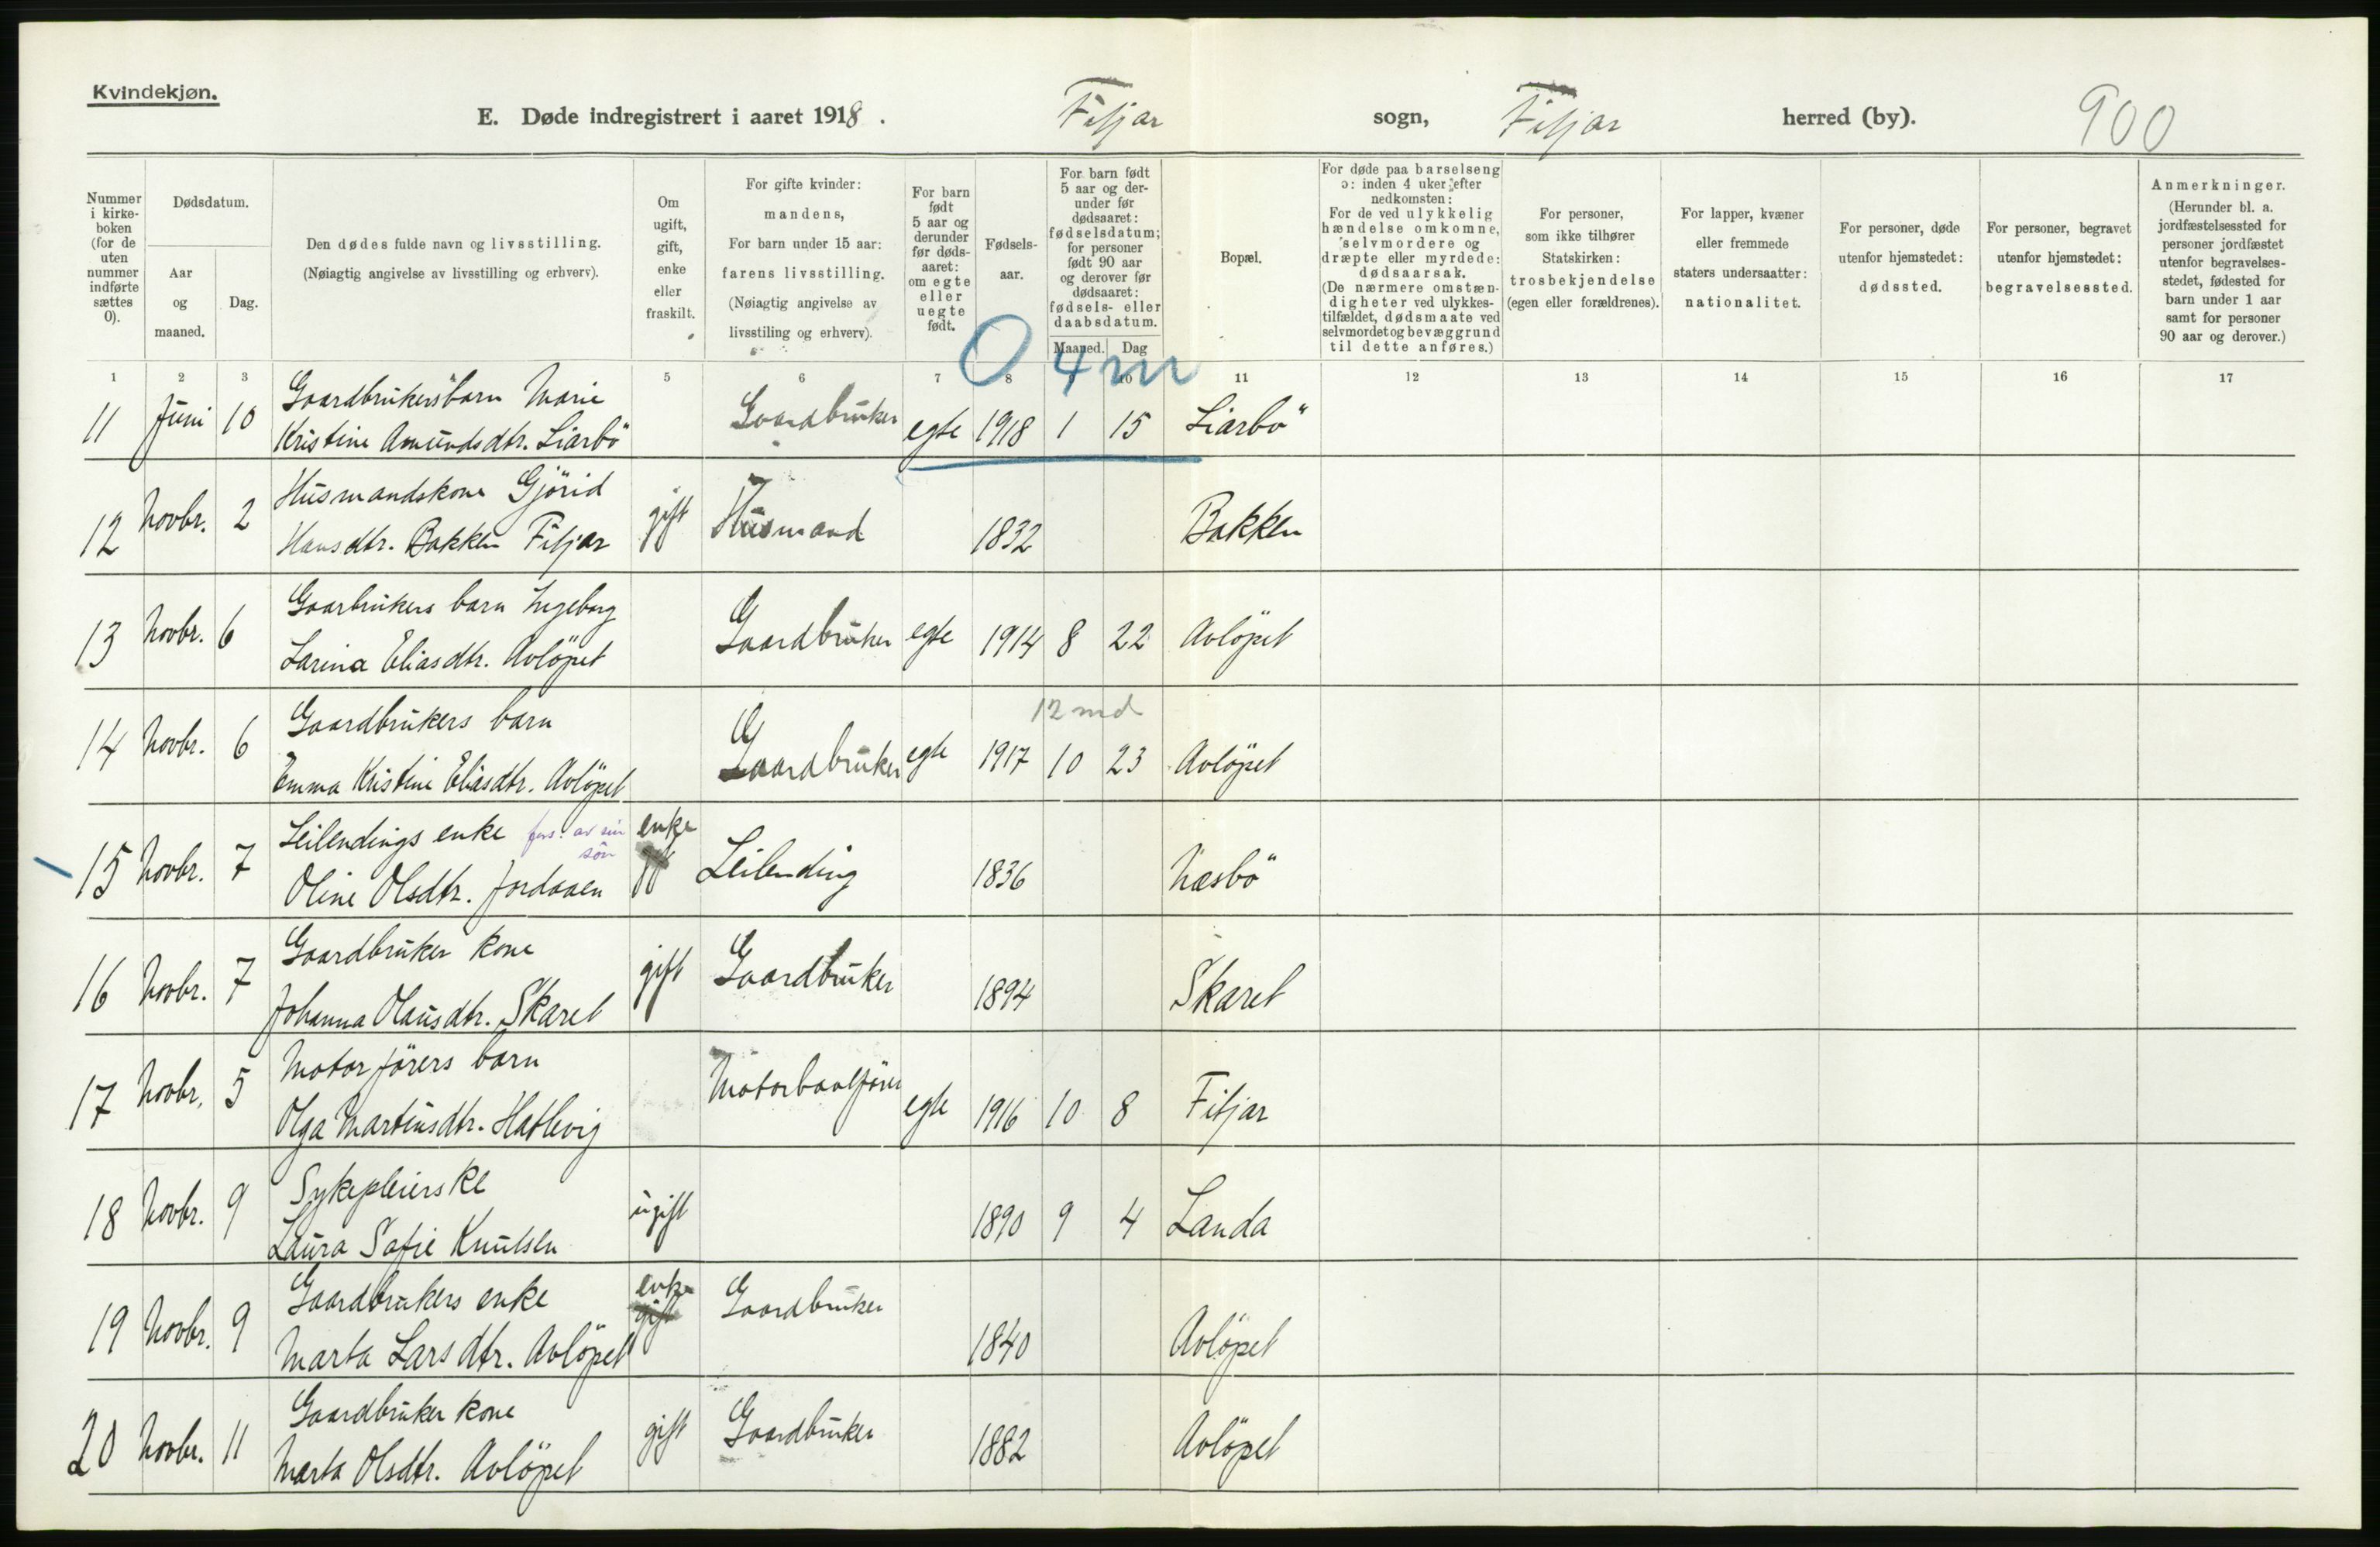 Kvindekjøn.
E. Døde indregistrert i aaret 1918. Fitjar sogn, Fitjar herred (by). 900
Nummer i kirkeboken (for de uten nummer indførte sættes 0).
Dødsdatum.
Aar og maaned.
Dag.
Den dødes fulde navn og livsstilling.
(Nøiagtig angivelse av livsstilling og erhverv).
Om ugift, gift, enke eller fraskilt.
For gifte kvinder: mandens,
For barn under 15 aar: farens livsstilling.
(Nøiagtig angivelse av livsstiling og erhverv).
For barn født 5 aar og derunder før dødsaaret: om egte eller uegte født.
Fødselsaar.
For barn født 5 aar og derunder før dødsaaret: fødselsdatum; for personer født 90 aar og derover før dødsaaret: fødsels- eller daabsdatum.
Maaned. Dag
Bopæl.
For døde paa barselseng ɔ: inden 4 uker efter nedkomsten:
For de ved ulykkelig hændelse omkomne, selvmordere og dræpte eller myrdede: dødsaarsak.
(De nærmere omstændigheter ved ulykkestilfældet, dødsmaate ved selvmordet og bevæggrund til dette anføres.)
For personer, som ikke tilhører Statskirken: trosbekjendelse (egen eller forældrenes).
For lapper, kvæner eller fremmede staters undersaatter: nationalitet.
For personer, døde utenfor hjemstedet: dødssted.
For personer, begravet utenfor hjemstedet: begravelsessted.
Anmerkninger.
(Herunder bl. a. jordfæstelsessted for personer jordfæstet utenfor begravelsesstedet, fødested for barn under 1 aar samt for personer 90 aar og derover.)
1 2 3 5 6 7 8 9 10 11 12 13 14 15 16 17
0 4 m
11 Juni 10 Gaardbrukersbarn Marie Kristine Amundsdtr. Liarbö Gaardbruker egte 1918 1 15 Liarbö
12 Novbr. 2 Husmandskone Gjörid Hansdtr. Bakken Fitjar gift Husmand 1832 Bakken
13 Novbr. 6 Gaarbrukers barn Ingeborg Larina Eliasdtr. Avlöpet Gaardbruker egte 1914 8 22 Avlöpet
12 md
14 Novbr. 6 Gaardbrukers barn Emma Kristine Eliasdtr. Avlöpet Gaardbruker egte 1917 10 23 Avlöpet
15 Novbr. 7 Leilendings enke fors. av sin sön Oline Olsdtr. Jordaaen enke Leilending 1836 Næsbö
16 Novbr. 7 Gaardbruker kone Johanna Olausdtr. Skaret gift Gaardbruker 1894 Skaret
17 Novbr. 5 Motorförers barn Olga Martinsdtr. Hatlevig Motorbaatförer egte 1916 10 8 Fitjar
18 Novbr. 9 Sykepleierske Laura Sofie Knutsen ugift 1890 9 4 Landa
19 Novbr. 9 Gaardbrukers enke Marta Larsdtr. Avlöpet enke gift Gaardbruker 1840 Avlöpet
20 Novbr. 11 Gaardbruker kone Marta Olsdtr. Avlöpet gift Gaardbruker 1882 Avlöpet